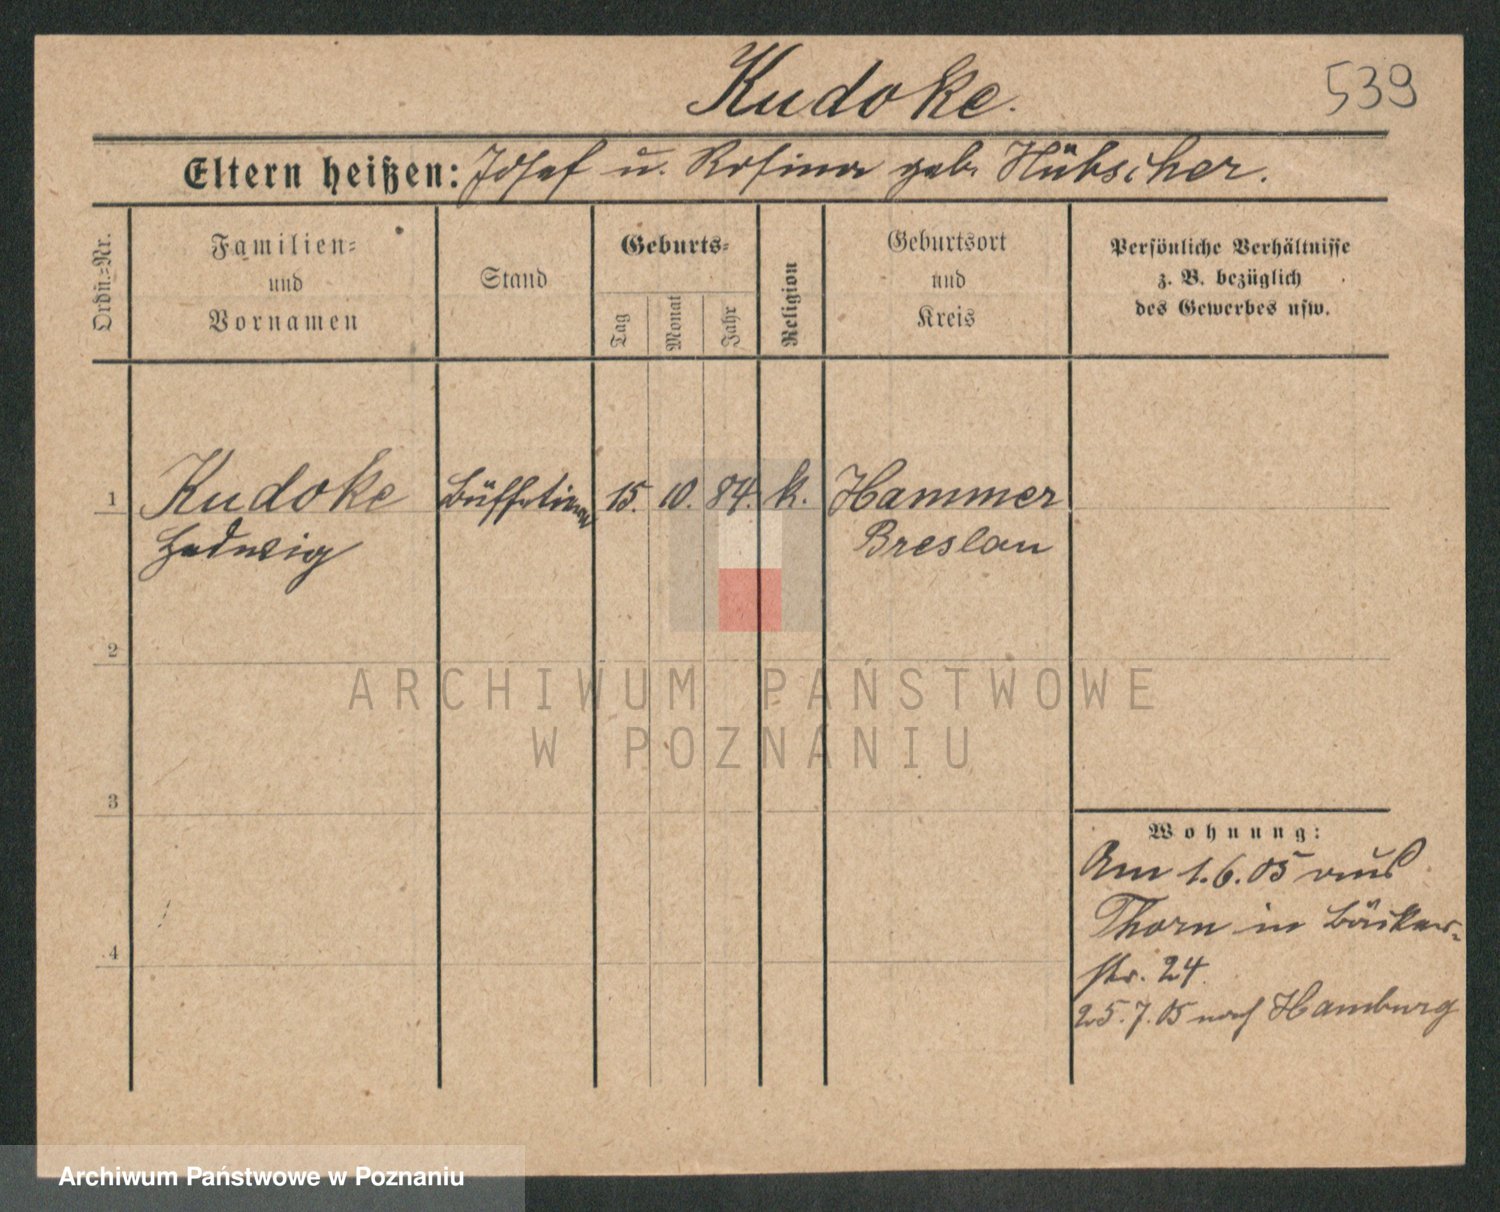 Kudoke.
539
Eltern heißen: Josef u. Rosina geb. Hübscher.
Ordn.-Nr.
Familien- und Vornamen
Stand
Geburts-
Tag
Monat
Jahr
Religion
Geburtsort und Kreis
Persönliche Verhältnisse
z. B. bezüglich
des Gewerbes usw.
1 Kudoke Büffetiere 15. 10. 84. k. Hammer
Hedwig Breslau
2
3
4
Wohnung:
Am 1.6.05 aus
Thorn in Bäcker-
str. 24.
25.7.05 nach Hamburg
ARCHIWUM PAŃSTWOWE
W POZNANIU
Archiwum Państwowe w Poznaniu